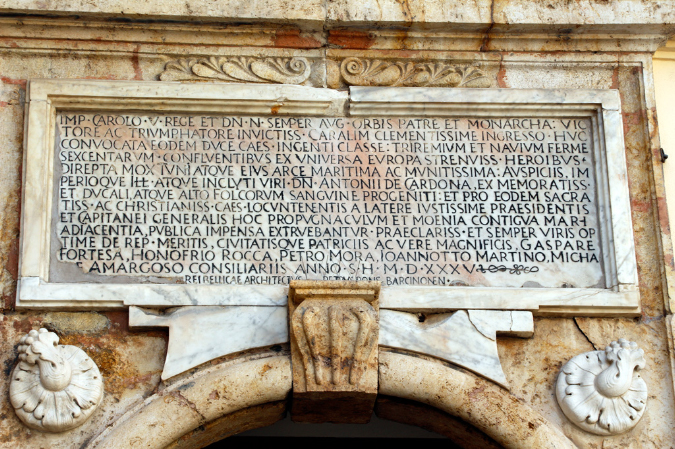 IMP · CAROLO · V · REGE ET · DN · N · SEMPER AVG · ORBIS PATRE ET MONARCHA: VIC
TORE AC TRIVMPHATORE INVICTISS · CARALIM CLEMENTISSIME INGRESSO · HVC
CONVOCATA EODEM DVCE CAES · INGENTI CLASSE: TRIREMIVM ET NAVIVM FERME
SEXCENTARVM · CONFLVENTIBVS EX VNIVERSA EVROPA STRENVISS · HEROIBVS ·
DIREPTA MOX TVNI ATQVE EIVS ARCE MARITIMA AC MVNITISSIMA: AVSPICIIS, IM
PERIOQVE ATQVE INCLYTI VIRI · DN · ANTONII DE CARDONA, EX MEMORATISS ·
ET DVCALI, ATQVE ALTO FOLCORVM SANGVINE PROGENITI: ET PRO EODEM SACRA
TISS · AC CHRISTIANISS · CAES · LOCVNTENENTIS A LATERE IVSTISSIME PRAESIDENTIS
ET CAPITANEI GENERALIS HOC PROPVGNACVLVM ET MOENIA CONTIGVA MARI
ADIACENTIA, PVBLICA IMPENSA EXTRVEBANTVR · PRAECLARISS · ET SEMPER VIRIS OP
TIME DE REP · MERITIS, CIVITATISQVE PATRICIIS AC VERE MAGNIFICIS, GASPARE
FORTESA, HONOFRIO ROCCA, PETRO MORA, IOANNOTTO MARTINO, MICHA
AMARGOSO CONSILIARIIS ANNO · S · H · M · D · XXXV
REI BELLICAE ARCHITECTVS PETRO PONE BARCINONEN ·